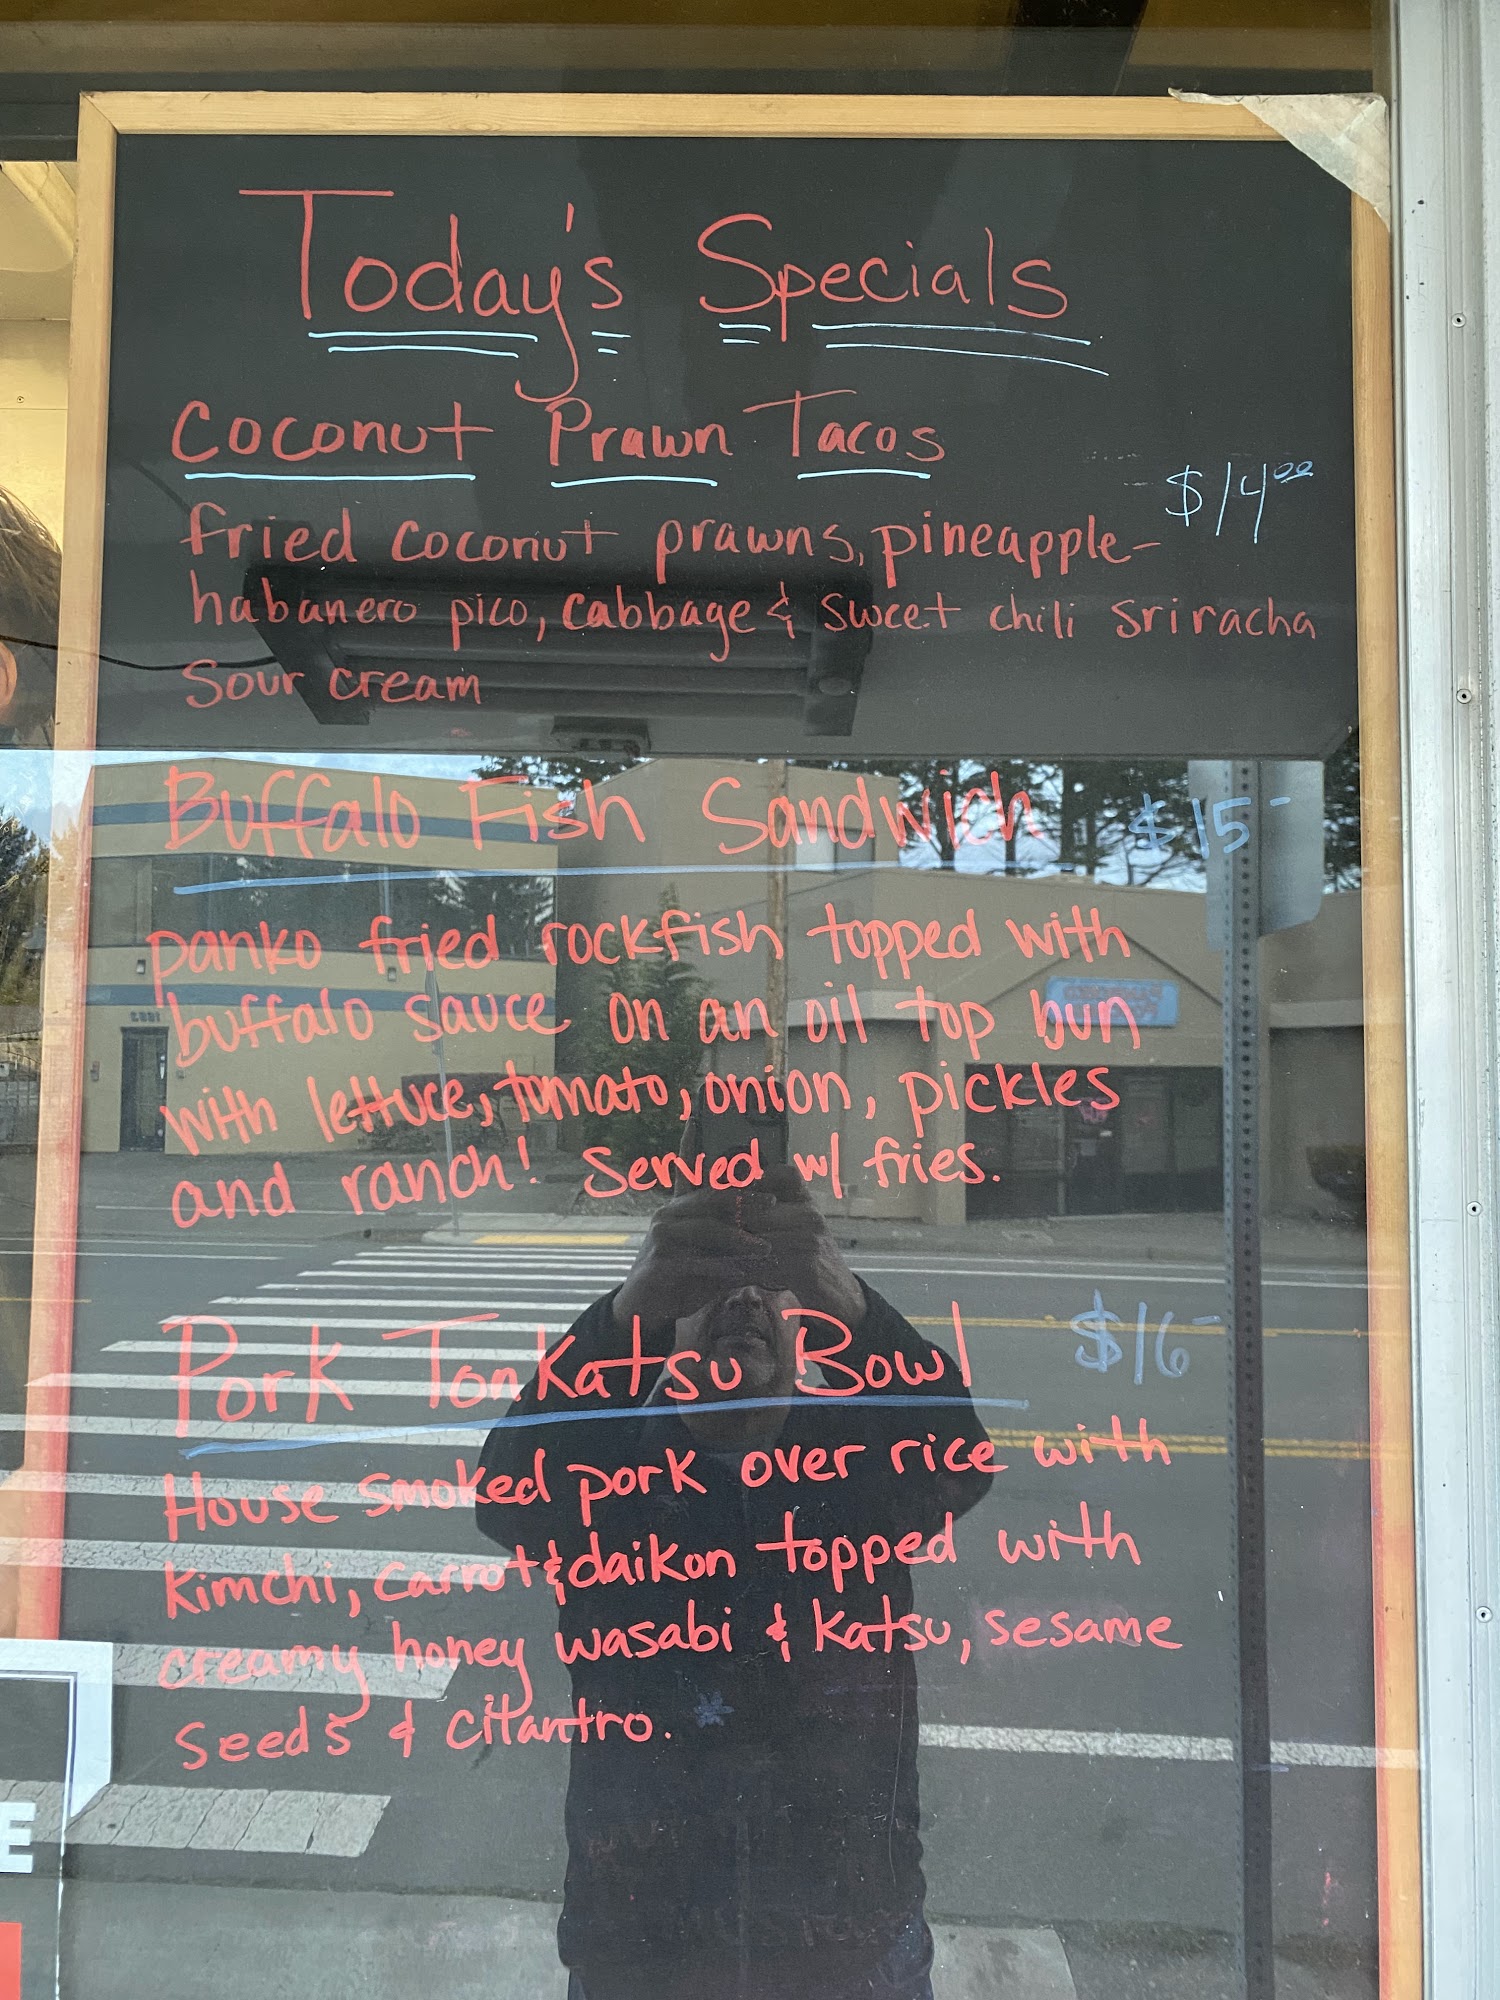 Today's Specials
Coconut Prawn Tacos
$14.00
fried coconut prawns, pineapple-
habanero pico, cabbage & sweet chili sriracha
sour cream
Buffalo Fish Sandwich $15-
panko fried rockfish topped with
buffalo sauce on an oil top bun
with lettuce, tomato, onion, pickles
and ranch! Served w/ fries.
Pork Tonkatsu Bowl $16-
House smoked pork over rice with
kimchi, carrot & daikon topped with
creamy honey wasabi & katsu, sesame
seeds & cilantro.
E